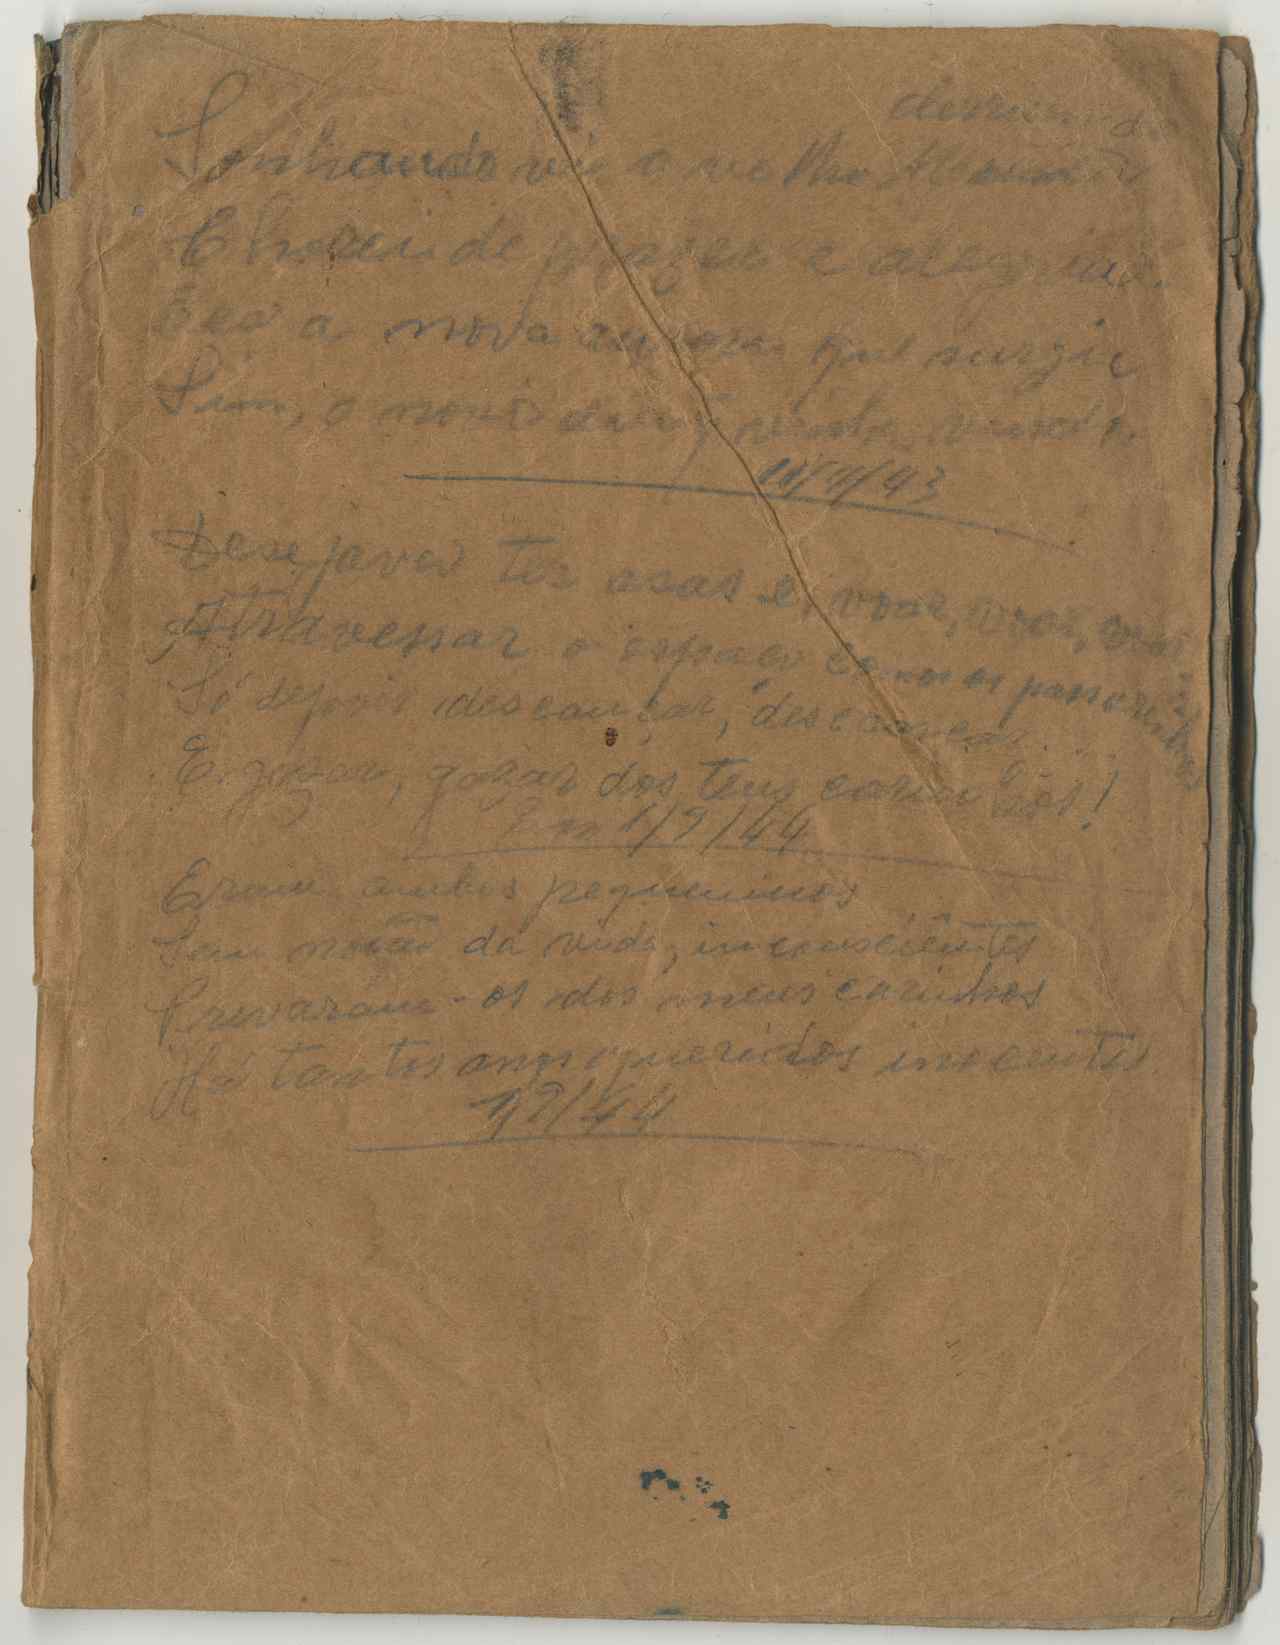 Sonhando vi o velho
Chorei de prazer e alegria.
a nova aurora que surgia
Sim, o novo venha, venha
/43
Desejava ter asas e, voar, voar, voar
Atravessar o espaço como os passarinhos
Só depois descançar, descançar...
E gozar, gozar dos teus carinhos!
Em 1/9/44
Eram ambos pequeninos
Sem noção da vida, inconsciêntes
Privaram-os dos meus carinhos
Há tantos anos queridos inocentes
1/9/44